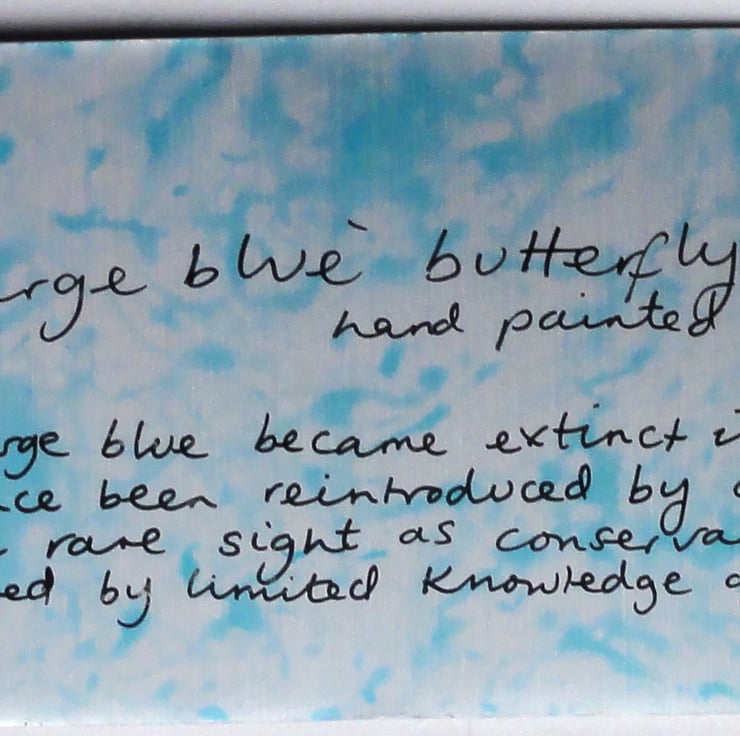 rge blue butterfly
hand painted
rge blue became extinct i
ce been reintroduced by
rare sight as conserva
ed by limited knowledge